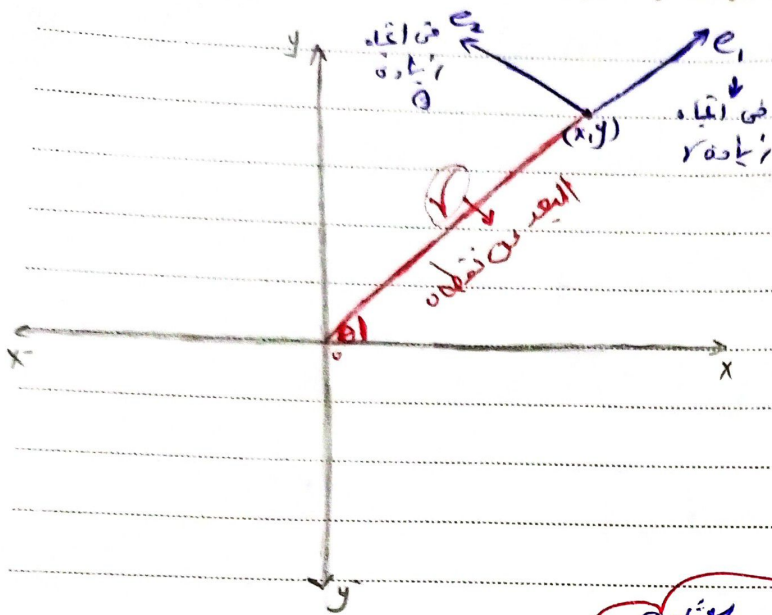 y
e₂
فى اتجاه
زيادة
θ
e₁
فى اتجاه
زيادة r
(x,y)
r
البعد عن نقطة o
θ
o
x⁻
x
y⁻